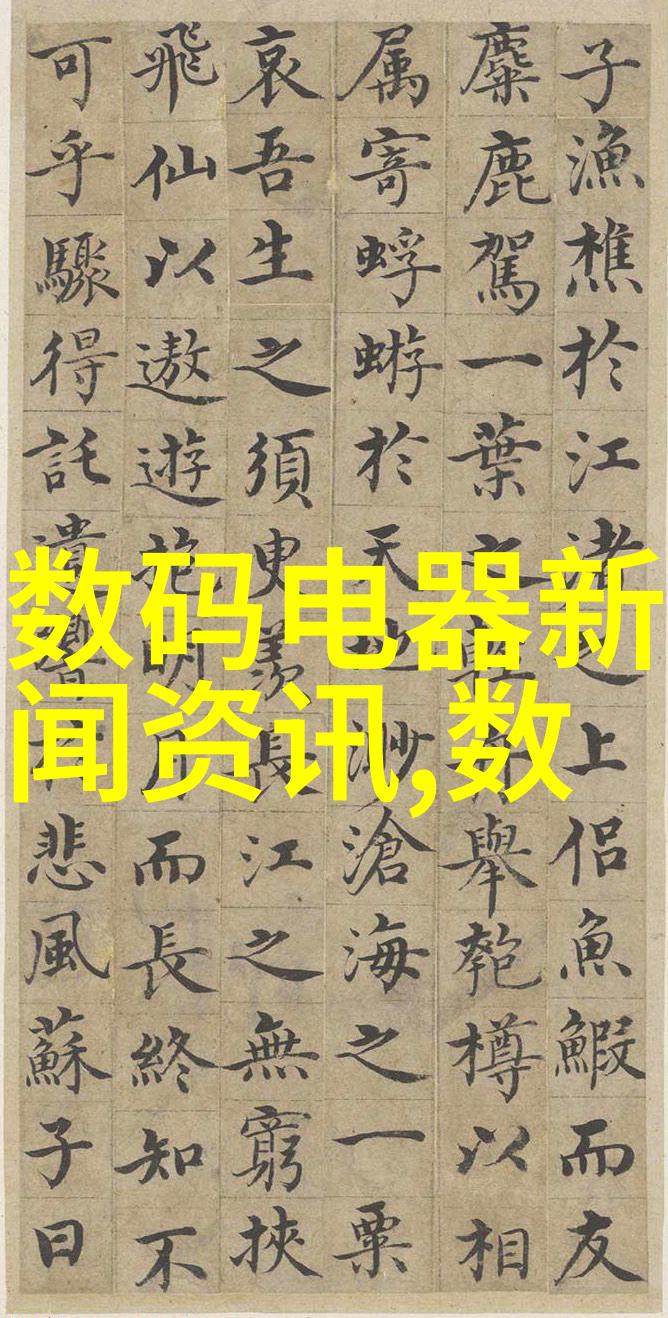 子漁樵於江渚之上侣魚鰕而友
麋鹿駕一葉之輕舟舉匏樽以相
属寄蜉蝣於天地渺滄海之一粟
哀吾生之須臾羨長江之無窮挾
飛仙以遨遊抱明月而長終知不
可乎驟得託遺響於悲風蘇子曰
数码电器新
闻资讯,数